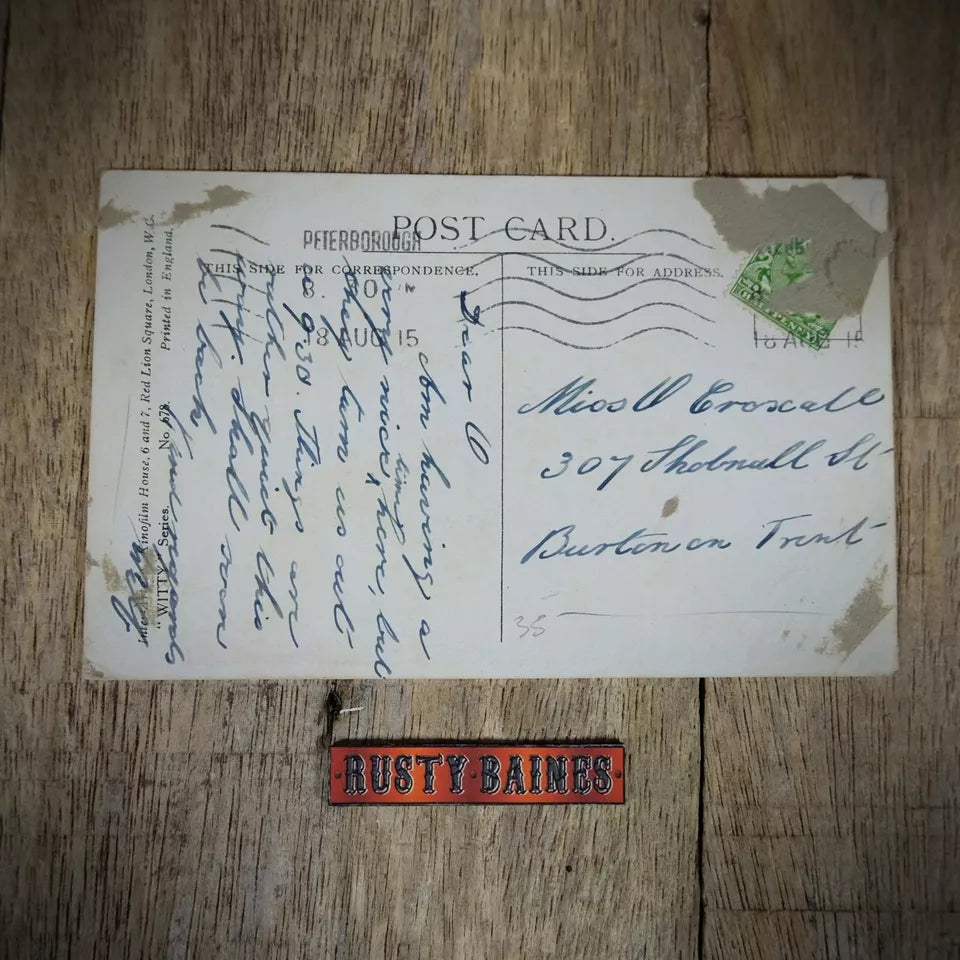 POST CARD.
PETERBOROUGH
THIS SIDE FOR CORRESPONDENCE.
THIS SIDE FOR ADDRESS.
18 AUG 15
Dear O
Am having a
very nice time here, but
they turn us out
at 9.30. Things are
rather quiet this
Shall soon
be back
Kind regards
Miss O Croxall
307 Shobnall St
Burton on Trent
35
Kinofilm House, 6 and 7, Red Lion Square, London, W.C.
"WITTY" Series. No. 678. Printed in England.
RUSTY·BAINES